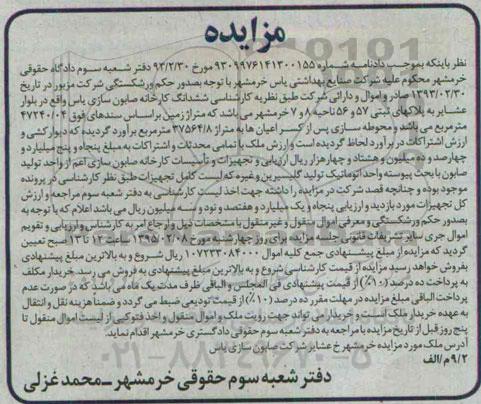 مزایده
نظر باینکه بموجب دادنامه شماره ۹۳۰۹۹۷۶۱۴۱۳۰۰۱۵۵ مورخ ۹۳/۲/۳۰ دفتر شعبه سوم دادگاه حقوقی
خرمشهر محکوم علیه شرکت صنایع بهداشتی یاس خرمشهر با توجه بصدور حکم ورشکستگی شرکت مزبور در تاریخ
۱۳۹۳/۰۲/۳۰ صادر و اموال و دارائی شرکت طبق نظریه کارشناسی ششدانگ کارخانه صابون سازی یاس واقع در بلوار
عشایر به پلاکهای ثبتی ۵۷ و ۵۶ ناحیه ۸ و ۷ خرمشهر می باشد که متراژ زمین براساس سندهای فوق ۴۷۲۴۰/۰۴
مترمربع می باشد و محوطه سازی پس از کسر اعیان ها به متراژ ۳۷۵۶۴/۸ مترمربع برآورد گردیده که دیوارکشی و
ارزش اشتراکات در برآورد لحاظ گردیده است و ارزش ملک با تمامی محدثات و اشتراکات به مبلغ پنجاه و پنج میلیارد و
چهارصد و ده میلیون و هشتاد و چهارهزار ریال ارزیابی و تجهیزات و تأسیسات کارخانه صابون سازی اعم از واحد تولید
صابون با پخت پیوسته واحد اتوماتیک تولید گلیسرین و غیره که لیست کامل تجهیزات طبق نظر کارشناسی در پرونده
موجود بوده و چنانچه قصد شرکت در مزایده را داشته جهت اخذ لیست کارشناسی به دفتر شعبه سوم مراجعه و ارزش
کل تجهیزات مورد بازدید و ارزیابی پنجاه و یک میلیارد و هفتصد و نود و سه میلیون ریال می باشد اعلام که با توجه به
بصدور حکم ورشکستگی و معرفی اموال منقول و غیر منقول با مشخصات ذیل و ارجاع امر به کارشناس و ارزیابی و تقویم
اموال جری سایر تشریفات قانونی جلسه مزایده برای روز چهارشنبه مورخ ۱۳۹۵/۰۲/۰۸ ساعت ۱۲ تا ۱۳ صبح تعیین
گردید که مزایده از مبلغ پیشنهادی جمع کلیه اموال ۱۰۷۲۳۳۰۸۴۰۰۰ ریال شروع و به بالاترین مبلغ پیشنهادی
بفروش خواهد رسید مزایده از قیمت کارشناسی شروع و به بالاترین مبلغ پیشنهادی به فروش می رسد. خریدار مکلف
به پرداخت ده درصد (۱۰٪) از قیمت پیشنهادی فی المجلس و الباقی ظرف مدت یک ماه می باشد که در صورت عدم
پرداخت الباقی مبلغ مزایده در مهلت مقرر ده درصد (۱۰٪) از قیمت تودیعی ضبط می گردد و ضمنا هزینه نقل و انتقال
به عهده خریدار ملک است و خریدار می تواند جهت رویت ملک و اموال منقول و اخذ فتوکپی از لیست اموال منقول تا
پنج روز قبل از تاریخ مزایده با مراجعه به دفتر شعبه سوم حقوقی دادگستری خرمشهر اقدام نماید.
آدرس ملک مورد مزایده خرمشهر خ عشایر شرکت صابون سازی یاس
۹/۲م/الف
دفتر شعبه سوم حقوقی خرمشهر ـ محمد غزلی
۰۲۱-۸۸۳۴۹۶۷۰-۵